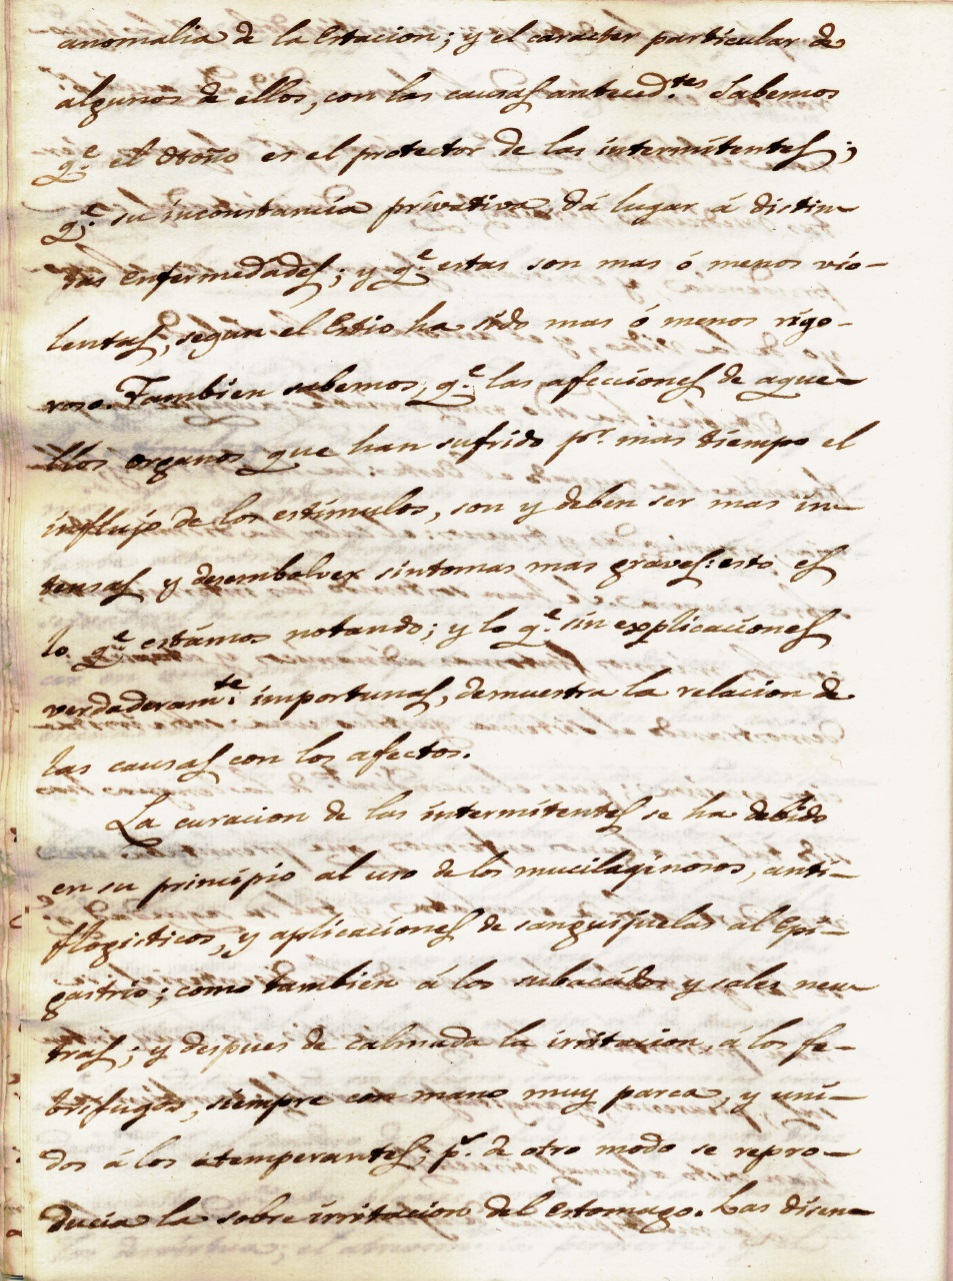 anomalia de la Estacion; y el caracter particular de
algunos de ellos, con las causas anteced.tes Sabemos
q.e el Otoño es el protector de las intermitentes;
q.e su inconstancia privativa, dá lugar á distin-
tas enfermedades; y q.e estas son mas ó menos vio-
lentas, segun el Estio ha sido mas ó menos rigo-
roso. Tambien sabemos, q.e las afecciones de aque-
llos organos que han sufrido p.r mas tiempo el
influjo de los estimulos, son y deben ser mas in-
tensas y desembolver sintomas mas graves: esto es
lo q.e estámos notando; y lo q.e sin explicaciones
verdaderam.te importunas, demuestra la relacion de
las causas con los afectos.
La curacion de las intermitentes se ha debido
en su principio al uso de los mucilaginosos, anti-
flogisticos, y aplicaciones de sanguijuelas al Epi-
gastrio; como tambien á los subacidos y sales neu-
tras; y despues de calmada la irritacion, á los fe-
brifugos, siempre con mano muy parca, y uni-
dos á los atemperantes; p.r de otro modo se repro-
ducia la sobreirritacion del estomago. Las disen-